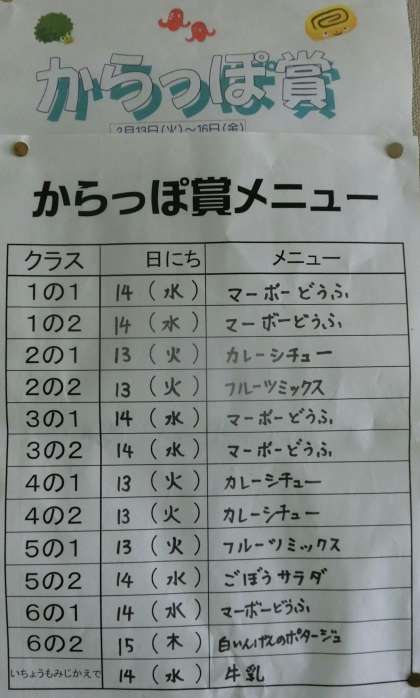 からっぽ賞
2月13日(火)～16日(金)
からっぽ賞メニュー
クラス 日にち メニュー
1の1 14(水) マーボーどうふ
1の2 14(水) マーボーどうふ
2の1 13(火) カレーシチュー
2の2 13(火) フルーツミックス
3の1 14(水) マーボーどうふ
3の2 14(水) マーボーどうふ
4の1 13(火) カレーシチュー
4の2 13(火) カレーシチュー
5の1 13(火) フルーツミックス
5の2 14(水) ごぼうサラダ
6の1 14(水) マーボーどうふ
6の2 15(木) 白いんげんのポタージュ
いちょうもみじかえで 14(水) 牛乳